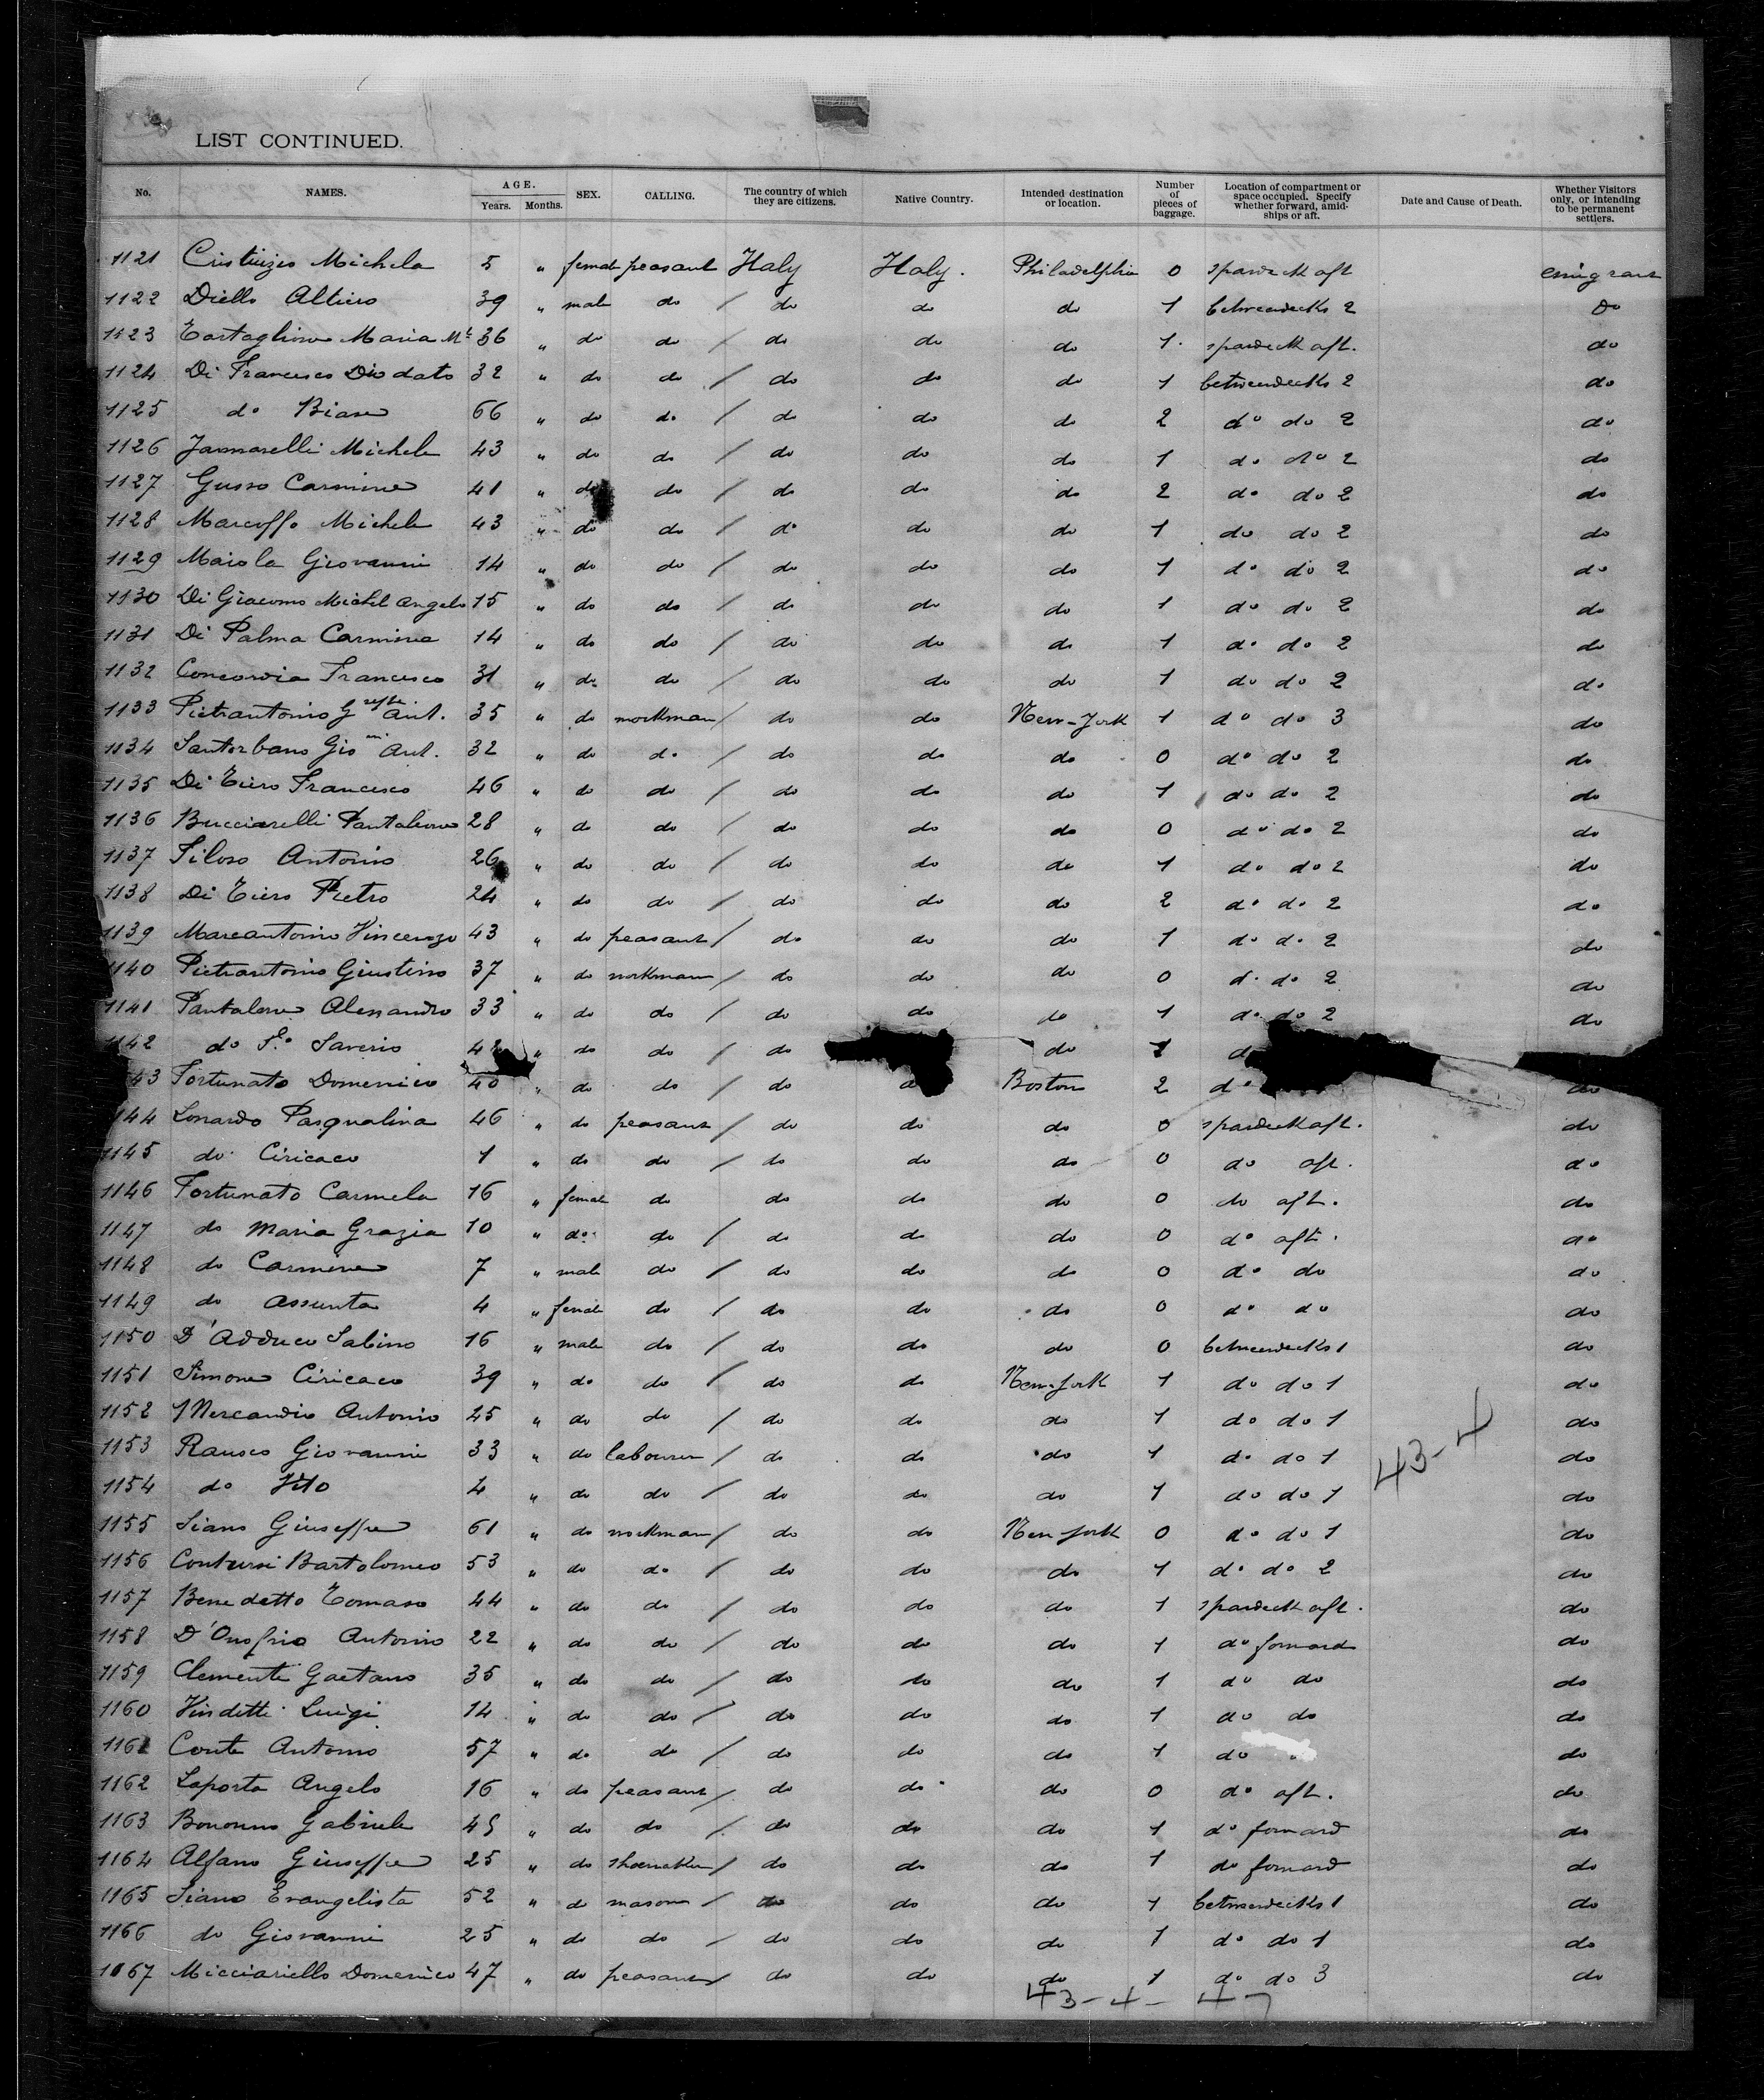 LIST CONTINUED.
No. NAMES. AGE. Years. Months. SEX. CALLING. The country of which they are citizens. Native Country. Intended destination or location. Number of pieces of baggage. Location of compartment or space occupied. Specify whether forward, amidships or aft. Date and Cause of Death. Whether Visitors only, or intending to be permanent settlers.
1121 Michela 5 " female peasant Italy Italy. Philadelphia 0 spardeck aft emigrant
1122 Diello Altiero 39 " male do / do do do 1 betweendecks 2 Do
1123 Tartaglione Maria Mc 36 " do do / do do do 1. spardeck aft. do
1124 Di Francesco Diodato 32 " do do / do do do 1 betweendecks 2 do
1125 do Biase 66 " do do / do do do 2 do do 2 do
1126 Jammarelli Michele 43 " do do / do do do 1 do do 2 do
1127 Gusso Carmine 41 " do do / do do do 2 do do 2 do
1128 Marcoffo Michele 43 " do do / do do do 1 do do 2 do
1129 Maiola Giovanni 14 " do do / do do do 1 do do 2 do
1130 Di Giacomo Michel Angelo 15 " do do / do do do 1 do do 2 do
1131 Di Palma Carmine 14 " do do / do do do 1 do do 2 do
1132 Concordia Francesco 31 " do do / do do do 1 do do 2 do
1133 Pietrantonio Gseppe Ant. 35 " do workman / do do New-York 1 do do 3 do
1134 Santorbano Gioni Ant. 32 " do do / do do do 0 do do 2 do
1135 Di Tiero Francesco 46 " do do / do do do 1 do do 2 do
1136 Bucciarelli Pantaleone 28 " do do / do do do 0 do do 2 do
1137 Siloso Antonio 26 " do do / do do do 1 do do 2 do
1138 Di Tiero Pietro 24 " do do / do do do 2 do do 2 do
1139 Marcantonio Vincenzo 43 " do peasant / do do do 1 do do 2 do
1140 Pietrantonio Giustino 37 " do workman / do do do 0 do do 2 do
1141 Pantalone Alessandro 33 " do do / do do do 1 do do 2 do
1142 do Fo. Saverio 42 " do do / do do 1
43 Fortunato Domenico 40 " do do / do Boston 2 do do
1144 Lonardo Pasqualina 46 " do peasant / do do do 0 spardeck aft. do
1145 do Ciriaco 1 " do do / do do do 0 do aft. do
1146 Fortunato Carmela 16 " female do do do do 0 do aft. do
1147 do Maria Grazia 10 " do do / do do do 0 do aft. do
1148 do Carmine 7 " male do / do do do 0 do do do
1149 do Assunta 4 " female do / do do do 0 do do do
1150 D'Adduco Sabino 16 " male do / do do do 0 betweendecks 1 do
1151 Simone Ciriaco 39 " do do / do do New-York 1 do do 1 do
1152 Mercandio Antonio 25 " do do / do do do 1 do do 1 do
1153 Rausco Giovanni 33 " do labourer / do do do 1 do do 1 43-4 do
1154 do Vito 4 " do do / do do do 1 do do 1 do
1155 Siano Giuseppe 61 " do workman / do do New York 0 do do 1 do
1156 Contursi Bartolomeo 53 " do do / do do do 1 do do 2 do
1157 Benedetto Tomaso 44 " do do / do do do 1 spardeck aft. do
1158 D'Onofrio Antonio 22 " do do / do do do 1 do forward do
1159 Clemente Gaetano 35 " do do / do do do 1 do do do
1160 Vindetti Luigi 14 " do do / do do do 1 do do do
1161 Conte Antonio 57 " do do / do do do 1 do do
1162 Laporta Angelo 16 " do peasant / do do do 0 do aft. do
1163 Bonomo Gabriele 45 " do do / do do do 1 do forward do
1164 Alfano Giuseppe 25 " do shoemaker / do do do 1 do forward do
1165 Siano Evangelista 52 " do mason / do do do 1 betweendecks 1 do
1166 do Giovanni 25 " do do / do do do 1 do do 1 do
1067 Micciariello Domenico 47 " do peasant / do do do 1 do do 3 do
43-4- 47